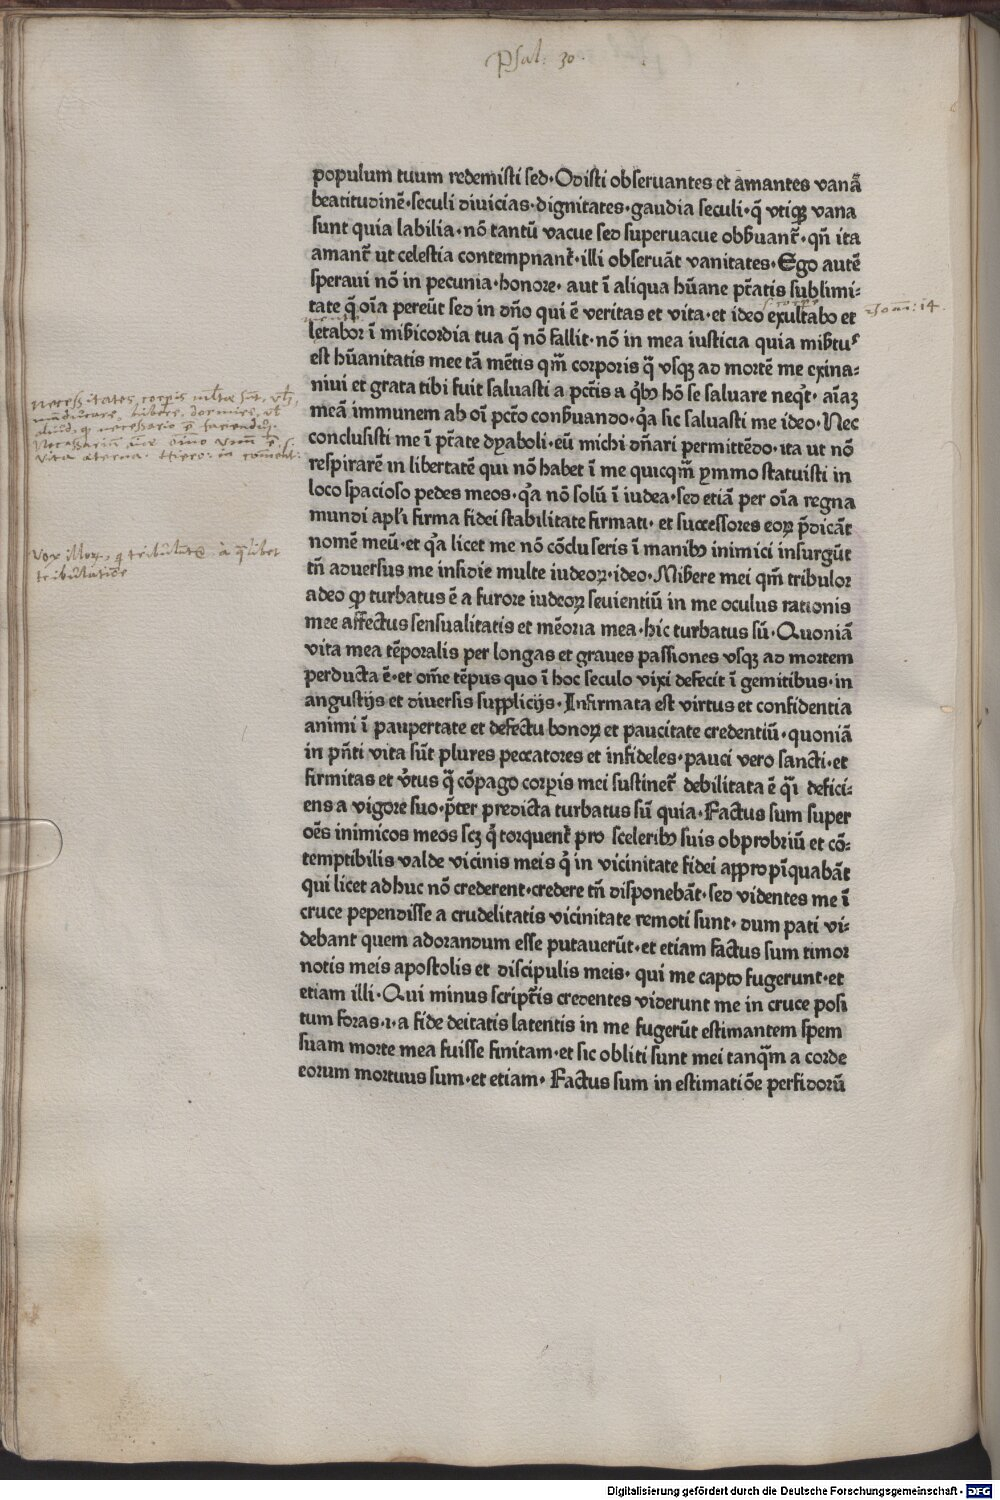 Psal: 30.
populum tuum redemisti sed·Odisti obseruantes et amantes vanā
beatitudinē·seculi diuicias·dignitates·gaudia seculi·q̄ vtiqꝫ vana
sunt quia labilia·nō tantū vacue sed superuacue obẜuant᷑·qn̄ ita
amant᷑ ut celestia contempnant᷑·illi obseruāt vanitates·Ego autē
speraui nō in pecunia·honore·aut ī aliqua hūane pt̄atis sublimi⸗
tate q̄ oīa pereūt sed in dn̄o qui ē veritas et vita·et ideo exultabo et
Ioan: 14.
letabor ī miẜicordia tua q̄ nō fallit·nō in mea iusticia quia miẜtuˢ
est hūanitatis mee tā mētis qm̄ corporis q̄ vsqꝫ ad mortē me exina⸗
niui et grata tibi fuit saluasti a pct̄is a qͥbꝫ hō se saluare neqͥt·aīaꝫ
meā immunem ab oī pct̄o conẜuando·qͣa sic saluasti me ideo·Nec
conclusisti me ī pt̄ate dyaboli·eū michi dn̄ari permittēdo·ita ut nō
respirarē in libertatē qui nō habet ī me quicqm̄ ymmo statuisti in
loco spacioso pedes meos·qͣa nō solū ī iudea·sed etiā per oīa regna
mundi apl'i firma fidei stabilitate firmati·et successores eoꝝ p̄dicāt
nomē meū·et qͣa licet me nō cōcluseris ī manibꝫ inimici insurgūt
tn̄ aduersus me insidie multe iudeoꝝ·ideo·Miẜere mei qm̄ tribulor
adeo ꝙ turbatus ē a furore iudeoꝝ seuientiū in me oculus rationis
mee affectus sensualitatis et mēoria mea·hic turbatus sū·Quoniā
vita mea tēporalis per longas et graues passiones vsqꝫ ad mortem
perducta ē·et om̄e tēpus quo ī hoc seculo vixi defecit ī gemitibus·in
angustijs et diuersis supplicijs·Infirmata est virtus et confidentia
animi ī paupertate et defectu bonoꝝ et paucitate credentiū·quoniā
in pn̄ti vita sūt plures peccatores et infideles·pauci vero sancti·et
firmitas et v̓tus q̄ cōpago corꝑis mei sustinet᷑ debilitata ē qͣi defici⸗
ens a vigore suo·pter predicta turbatus sū quia·Factus sum super
oēs inimicos meos scꝫ qͥ torquent᷑ pro sceleribꝫ suis obprobriū et cō⸗
temptibilis valde vicinis meis qͥ in vicinitate fidei appropīquabāt
qui licet adhuc nō crederent·credere tn̄ disponebāt·sed videntes me ī
cruce pependisse a crudelitatis vicinitate remoti sunt·dum pati vi⸗
debant quem adorandum esse putauerūt·et etiam factus sum timor
notis meis apostolis et discipulis meis·qui me capto fugerunt·et
etiam illi·Qui minus script᷑is credentes viderunt me in cruce posi
tum foras·ı·a fide deitatis latentis in me fugerūt estimantem spem
suam morte mea fuisse finitam·et sic obliti sunt mei tanqm̄ a corde
eorum mortuus sum·et etiam·Factus sum in estimatiōe perfidorū
Necessitates corporis multae sūt, vt
manducare, bibere, dormire, vel
aliud, q necessario ē faciendū.
vita aeterna. Hiero: in coment:
Vox illoꝝ, q tribulant᷑ a qlibet
tribulatiōe
Digitalisierung gefördert durch die Deutsche Forschungsgemeinschaft - DFG